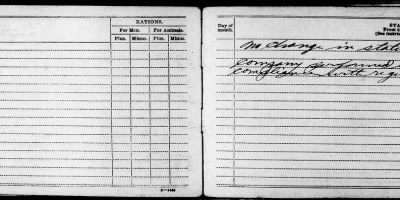 RATIONS.
For Men. For Animals.
Plus. Minus. Plus. Minus.
3—1409
Day of
month.
STA
From t
(See instru
no change in state
company performed
compliance with reg